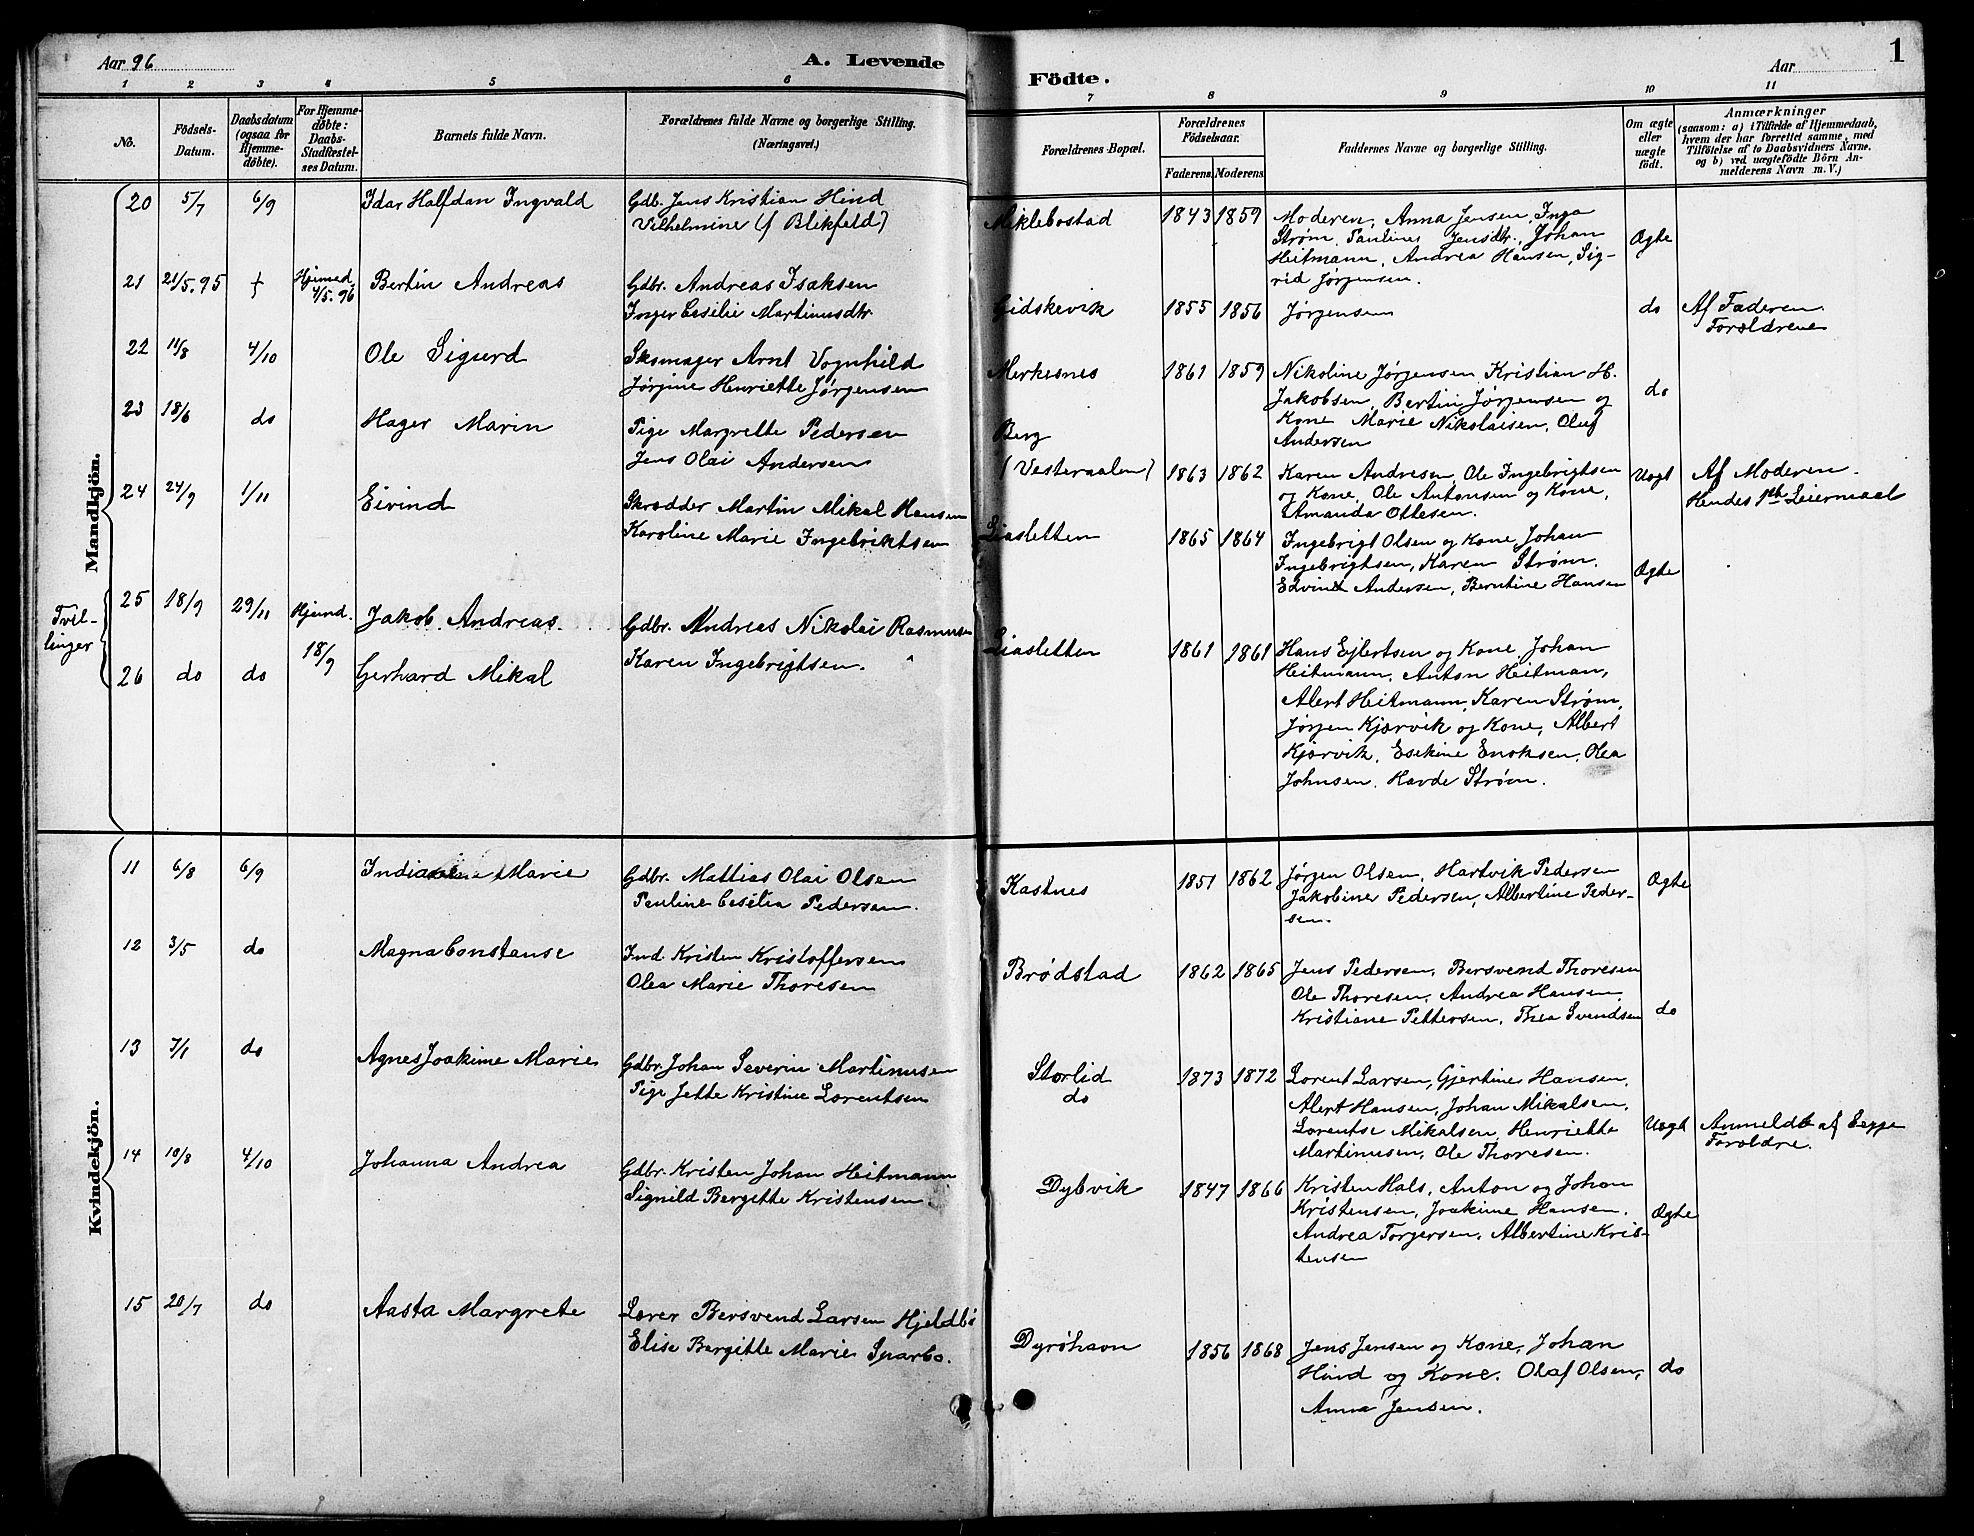 Aar 96
A. Levende
Födte.
Aar
1
1 2 3 4 5 6 7 8 9 10 11
No.
Födsels-Datum.
Daabsdatum (ogsaa for Hjemmedöbte).
For Hjemmedöbte: Daabs-Stadfæstelses Datum.
Barnets fulde Navn.
Forældrenes fulde Navne og borgerlige Stilling. (Næringsvei.)
Forældrenes Bopæl.
Forældrenes Födselsaar.
Faderens. Moderens.
Faddernes Navne og borgerlige Stilling.
Om ægte eller uægte født.
Anmærkninger
(saasom: a) i Tilfælde af Hjemmedaab, hvem der har forrettet samme, med Tilföielse af to Daabsvidners Navne, og b) ved uægtefödte Börn Anmelderens Navn m. V.)
Mandkjön.
20 5/7 6/9 Idar Halfdan Ingvald
Gdb. Jens Kristian Hind
Vilhelmine (f Blikfeld)
Miklebostad 1843 1859
Moderen, Anna Jensen, Inga
Strøm, Pauline Jensdtr., Johan
Heitmann, Andrea Hansen, Sig-
rid Jørgensen.
Ægte
21 21/5.95 † Hjemmed. 4/5.96 Bertin Andreas
Gdbr. Andreas Isaksen
Inger Cesilie Martinusdtr
Gidskevik 1855 1856
Jørgensen
do
Af Faderen
Forældrene
22 11/8 4/10 Ole Sigurd
Skomager Arnt Vognhild
Jørgine Henriette Jørgensen
Merkesnes 1861 1859
Nikoline Jørgensen, Kristian H.
Jakobsen, Bertin Jørgensen og
Kone Marie Nikolaisen, Oluf
Andersen
do
23 18/6 do Hager Marin
Pige Margrette Pedersen
Jens Olai Andersen
Berg
(Vesteraalen) 1863 1862
Karen Andresen, Ole Ingebrigtsen
og Kone, Ole Antonsen og Kone,
Amanda Ottesen.
Uægt
Af Moderen.
Hendes 1ste Leiermaal
24 24/9 1/11 Eivind
Skrædder Martin Mikal Hansen
Karoline Marie Ingebriktsen
Liasletten 1865 1864
Ingebrigt Olsen og Kone, Johan
Ingebrigtsen, Karen Strøm,
Edvind Andersen, Berntine Hansen
Ægte
Tvil-
linger
25 18/9 29/11 Hjemd. 18/9 Jakob Andreas
Gdbr. Andreas Nikolai Rasmusen
Karen Ingebrigtsen.
26 do do Gerhard Mikal
Liasletten 1861 1861
Hans Ejlertsen og Kone, Johan
Heitmann, Anton Heitman,
Alert Heitmann, Karen Strøm,
Jørgen Kjærvik og Kone, Albert
Kjærvik, Esekine Enoksen, Olea
Johnsen, Havde Strøm.
Kvindekjön.
11 6/8 6/9 Marie
Gdbr. Mattias Olai Olsen
Pauline Cesilia Pedersen.
Kastnes 1851 1862
Jørgen Olsen, Hartvik Pedersen
Jakobine Pedersen, Albertine Peder-
sen.
Ægte
12 3/5 do Magna Constanse
Ind. Kristen Kristoffersen
Olea Marie Thoresen
Brødstad 1862 1865
Jens Pedersen, Bersvend Thoresen
Ole Thoresen, Andrea Hansen
Kristiane Pettersen, Thea Svendsen
do
13 7/1 do Agnes Joakime Marie
Gdbr. Johan Severin Martinusen
Pige Jette Kristine Lorentsen
Storlid
do
1873 1872
Lorent Larsen, Gjertine Hansen,
Alert Hansen, Johan Mikalsen,
Lorentse Mikalsen, Henriette
Martinusen, Ole Thoresen.
Uægt
Anmeldt af begge
Forældre.
14 10/8 4/10 Johanna Andrea
Gdbr. Kristen Johan Heitmann
Signild Bergitte Kristensen
Dybvik 1847 1866
Kristen Hals, Anton og Johan
Kristensen, Joakime Hansen.
Andrea Torgersen, Albertine Kris-
tensen
Ægte
15 20/7 do Aasta Margrete
Lærer Bersvend Larsen Hjeldbø
Elise Bergitte Marie Snarbo.
Dyröhavn 1856 1868
Jens Jensen og Kone, Johan
Hind og Kone, Olaf Olsen,
Anna Jensen.
do